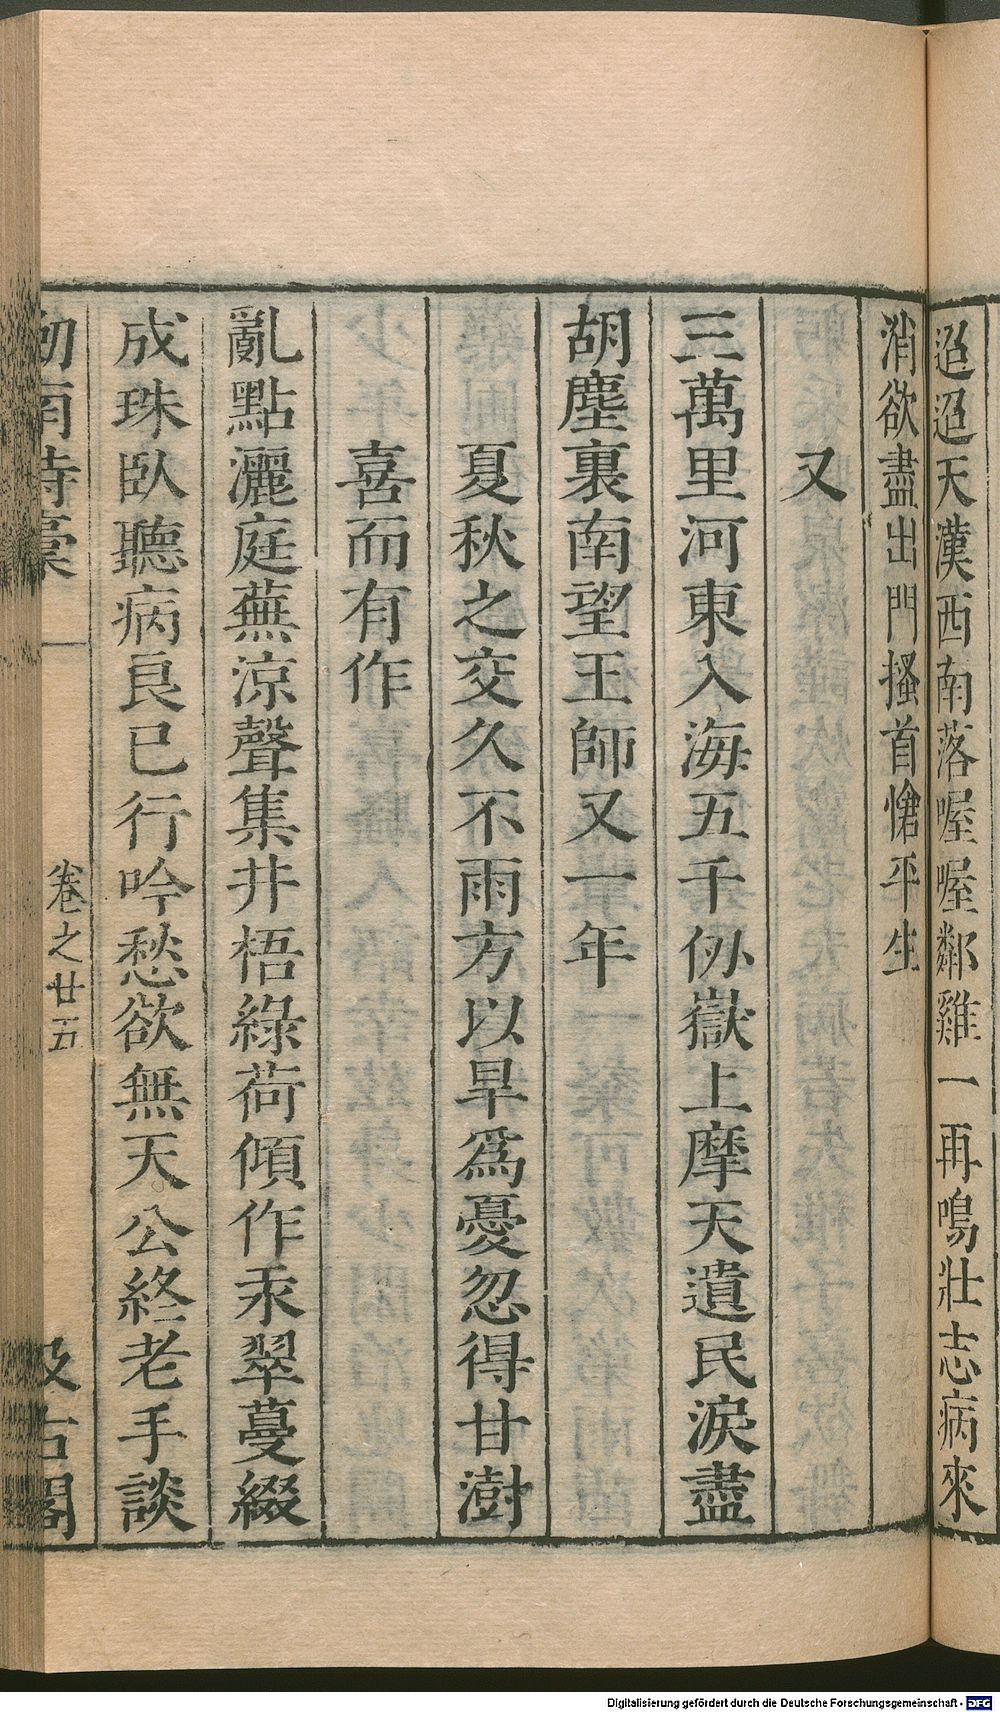 迢迢天漢西南落喔喔鄰雞一再鳴壯志病來
消欲盡出門搔首愴平生
又
三萬里河東入海五千仞嶽上摩天遺民淚盡
胡塵裏南望王師又一年
夏秋之交久不雨方以旱爲憂忽得甘澍
喜而有作
亂點灑庭蕪涼聲集井梧綠荷傾作汞翠蔓綴
成珠臥聽病良已行吟愁欲無天公終老手談
劒南詩稾
卷之廿五
汲古閣
Digitalisierung gefördert durch die Deutsche Forschungsgemeinschaft - DFG